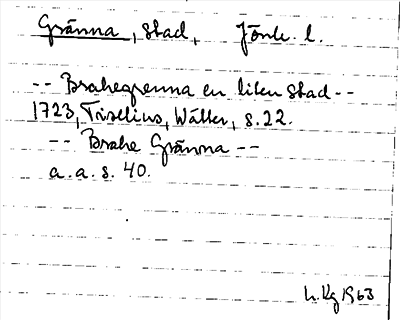 Gränna, stad, Jönk. l.
-- Brahegrenna en liten stad --
1723, Tiselius, Wätter, s. 22.
-- Brahe Gränna --
a. a. s. 40.
h. Kg 1963